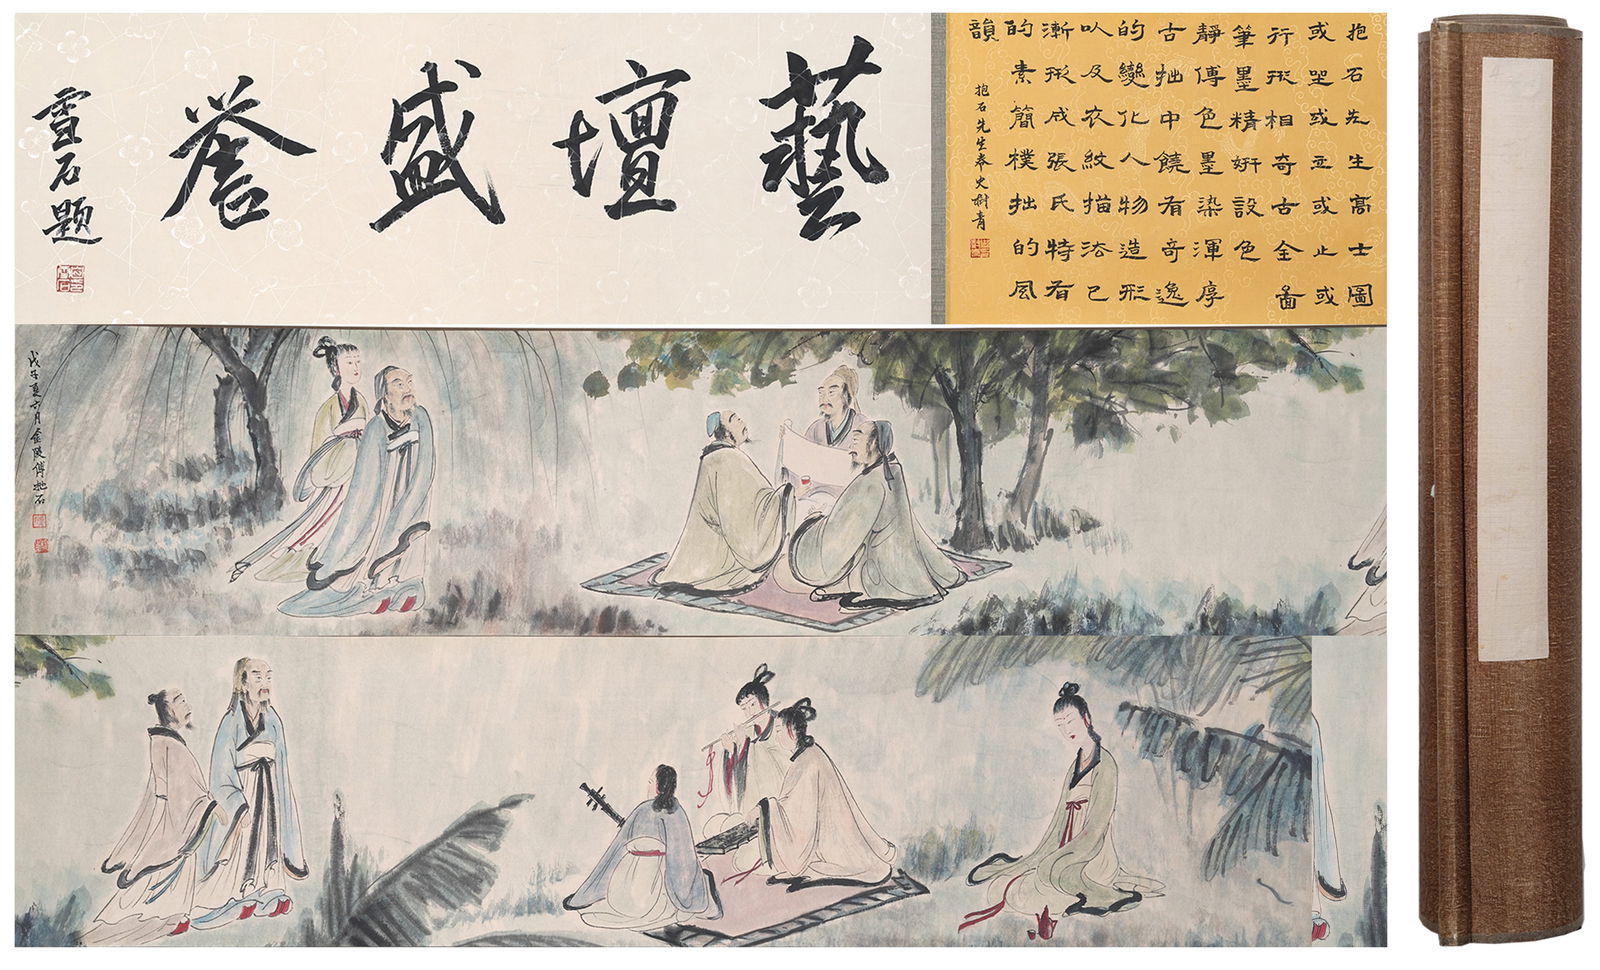 藝壇盛誉
雪石题
抱石先生高士圖
或坐或立或止或
行形相奇古全啚
筆墨精妍設色
靜傅色墨染渾厚
古拙中饒有奇逸
的變化人物造形
以及衣紋描法已
漸形成張氏特有
的素簡樸拙的風
韻
抱石先生奉史树青
戊子夏六月金陵傅抱石